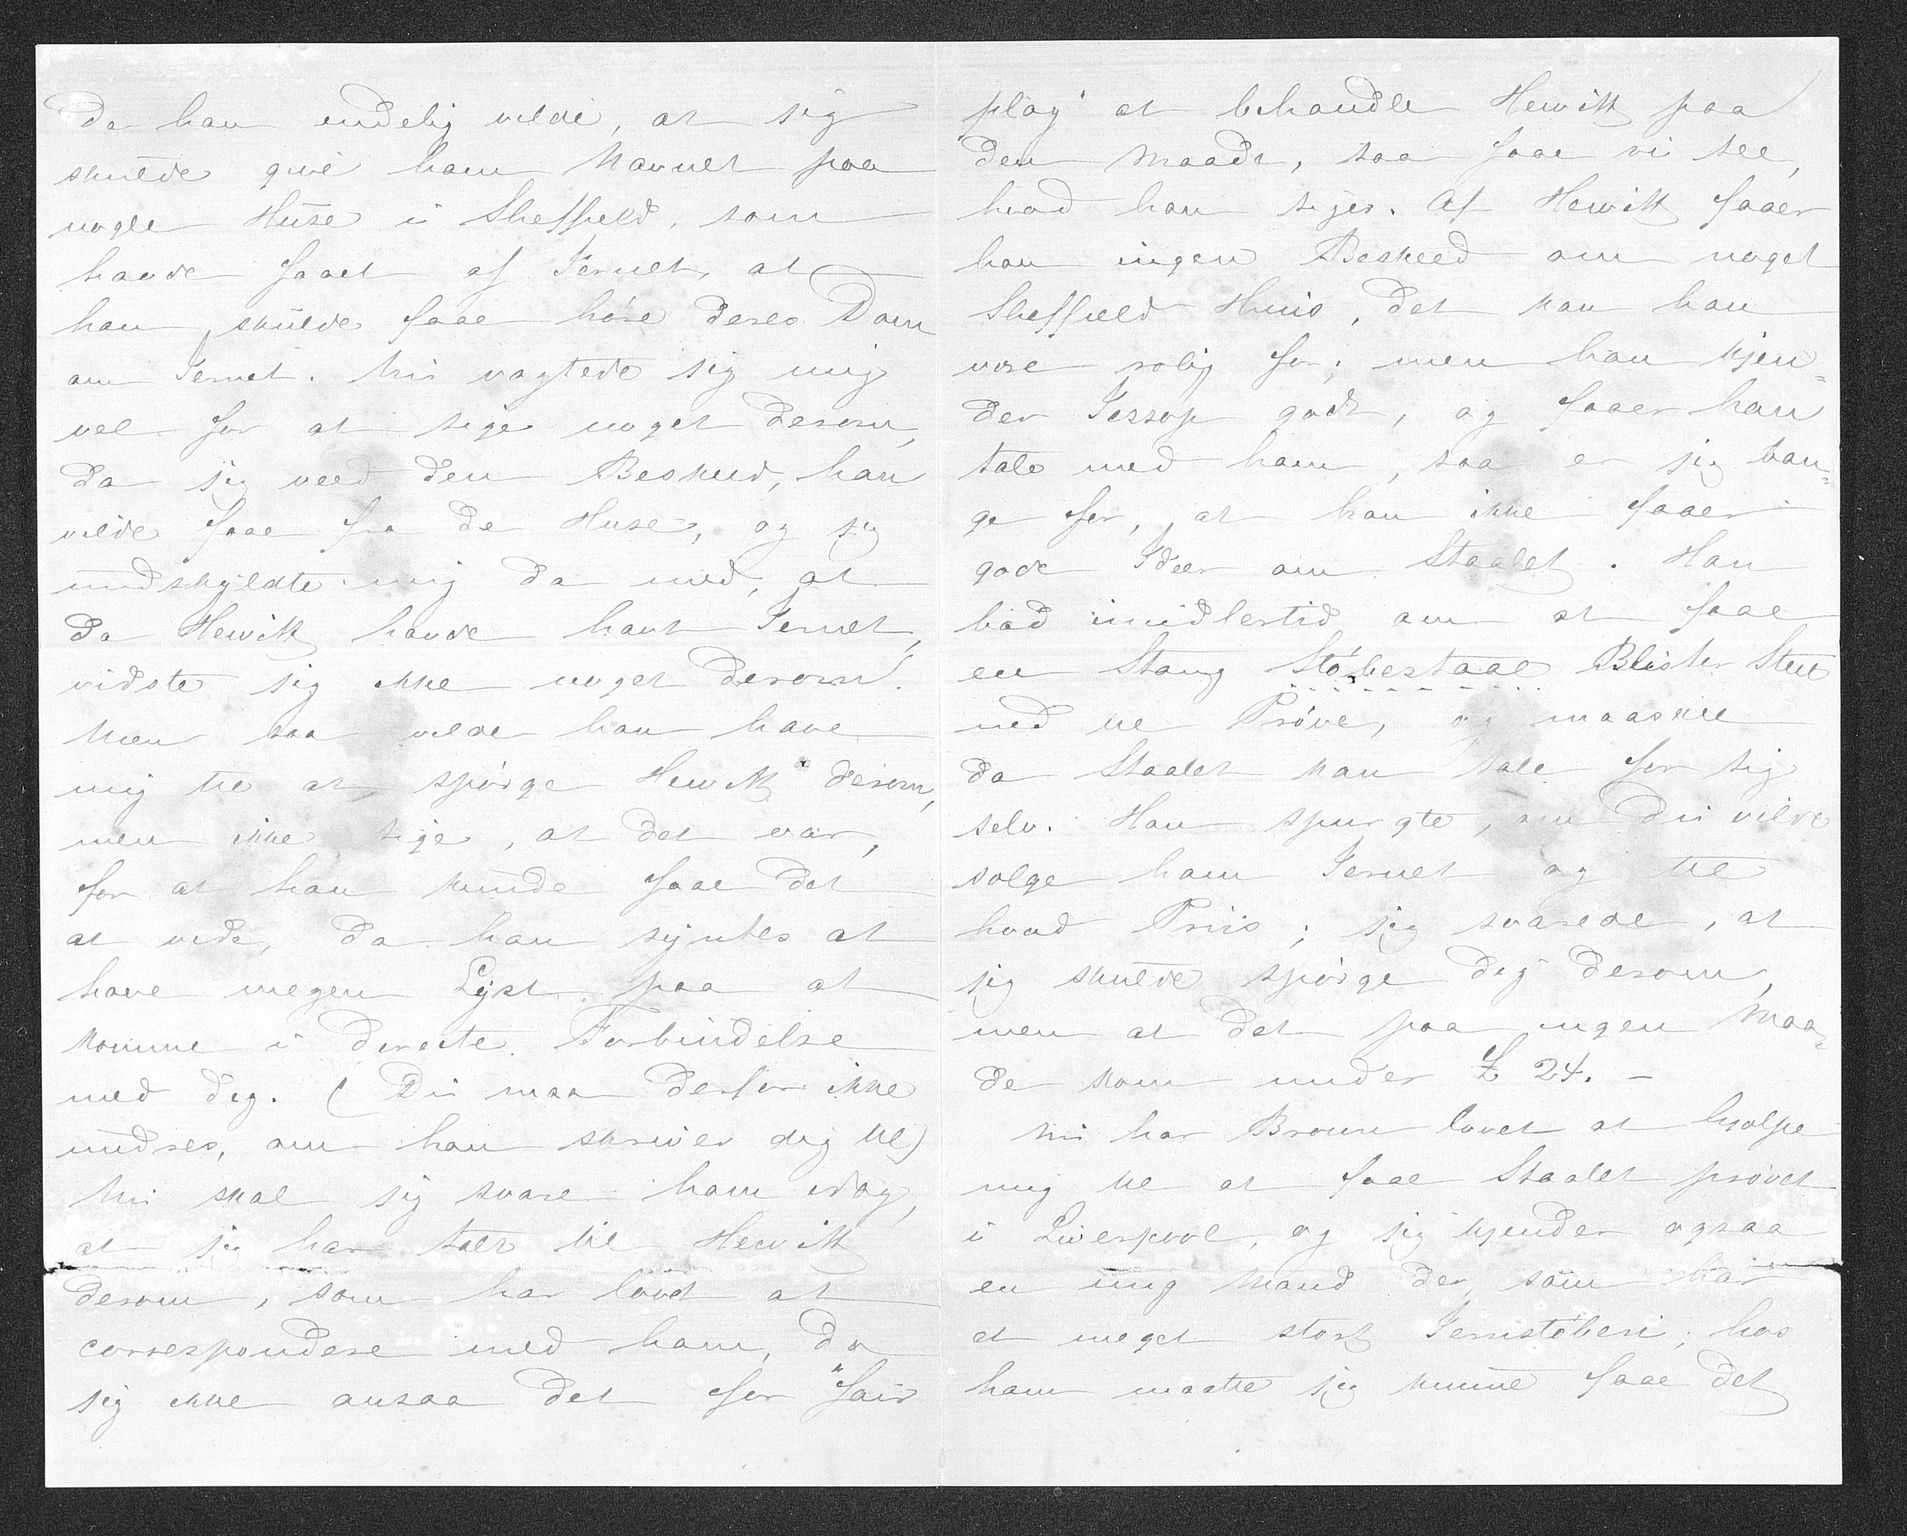 Da han endelig vilde, at jeg
skulde give ham Navnet paa
nogle Huse i Sheffield, som
havde faaet af Jernet, at
han skulde faae høre deres Dom
om Jernet. Nu vogtede jeg mig
vel for at sige noget derom,
da jeg veed den Beskeed, han
vilde faae fra de Huse, og jeg
undskyldte mig da med, at
da Hewitt havde havt Jernet,
vidste jeg ikke noget derom.
Men saa vilde han have
mig til at spørge Hewitt derom,
men ikke sige, at det var,
for at han kunde faae det
at vide, da han syntes at
have megen Lyst paa at
komme i directe Forbindelse
med dig. (Du maa derfor ikke
undres, om han skriver dig til)
Nu skal jeg svare ham idag,
at jeg har talt til Hewitt
derom, som har lovet at
correspondere med ham, da
jeg ikke ansaa det for "fair
play" at behandle Hewitt paa
den Maade, saa faae vi see,
hvad han siger. Af Hewitt faaer
han ingen Beskeed om noget
Sheffield Huus, det kan han
være rolig for; men han kjen=
der Jessop godt, og faaer han
tale med ham, saa er jeg ban=
ge for, at han ikke faaer
gode Ideer om Staalet. Han
bad imidlertid om at faae
en Stang Støbestaal Blister Steel
ned til Prøve, og maaskee
da Staalet kan tale for sig
selv. Han spurgte, om Du vilde
sælge ham Jernet og til
hvad Priis; jeg svarede, at
jeg skulde spørge dig derom,
men at det paa ingen Maa=
de kom under £ 24. -
Nu har Brown lovet at hjælpe
mig til at faae Staalet prøvet
i Liverpool, og jeg kjender ogsaa
en ung Mand der, som har
et meget stort Jernstøberi; hos
ham maatte jeg kunne faae det